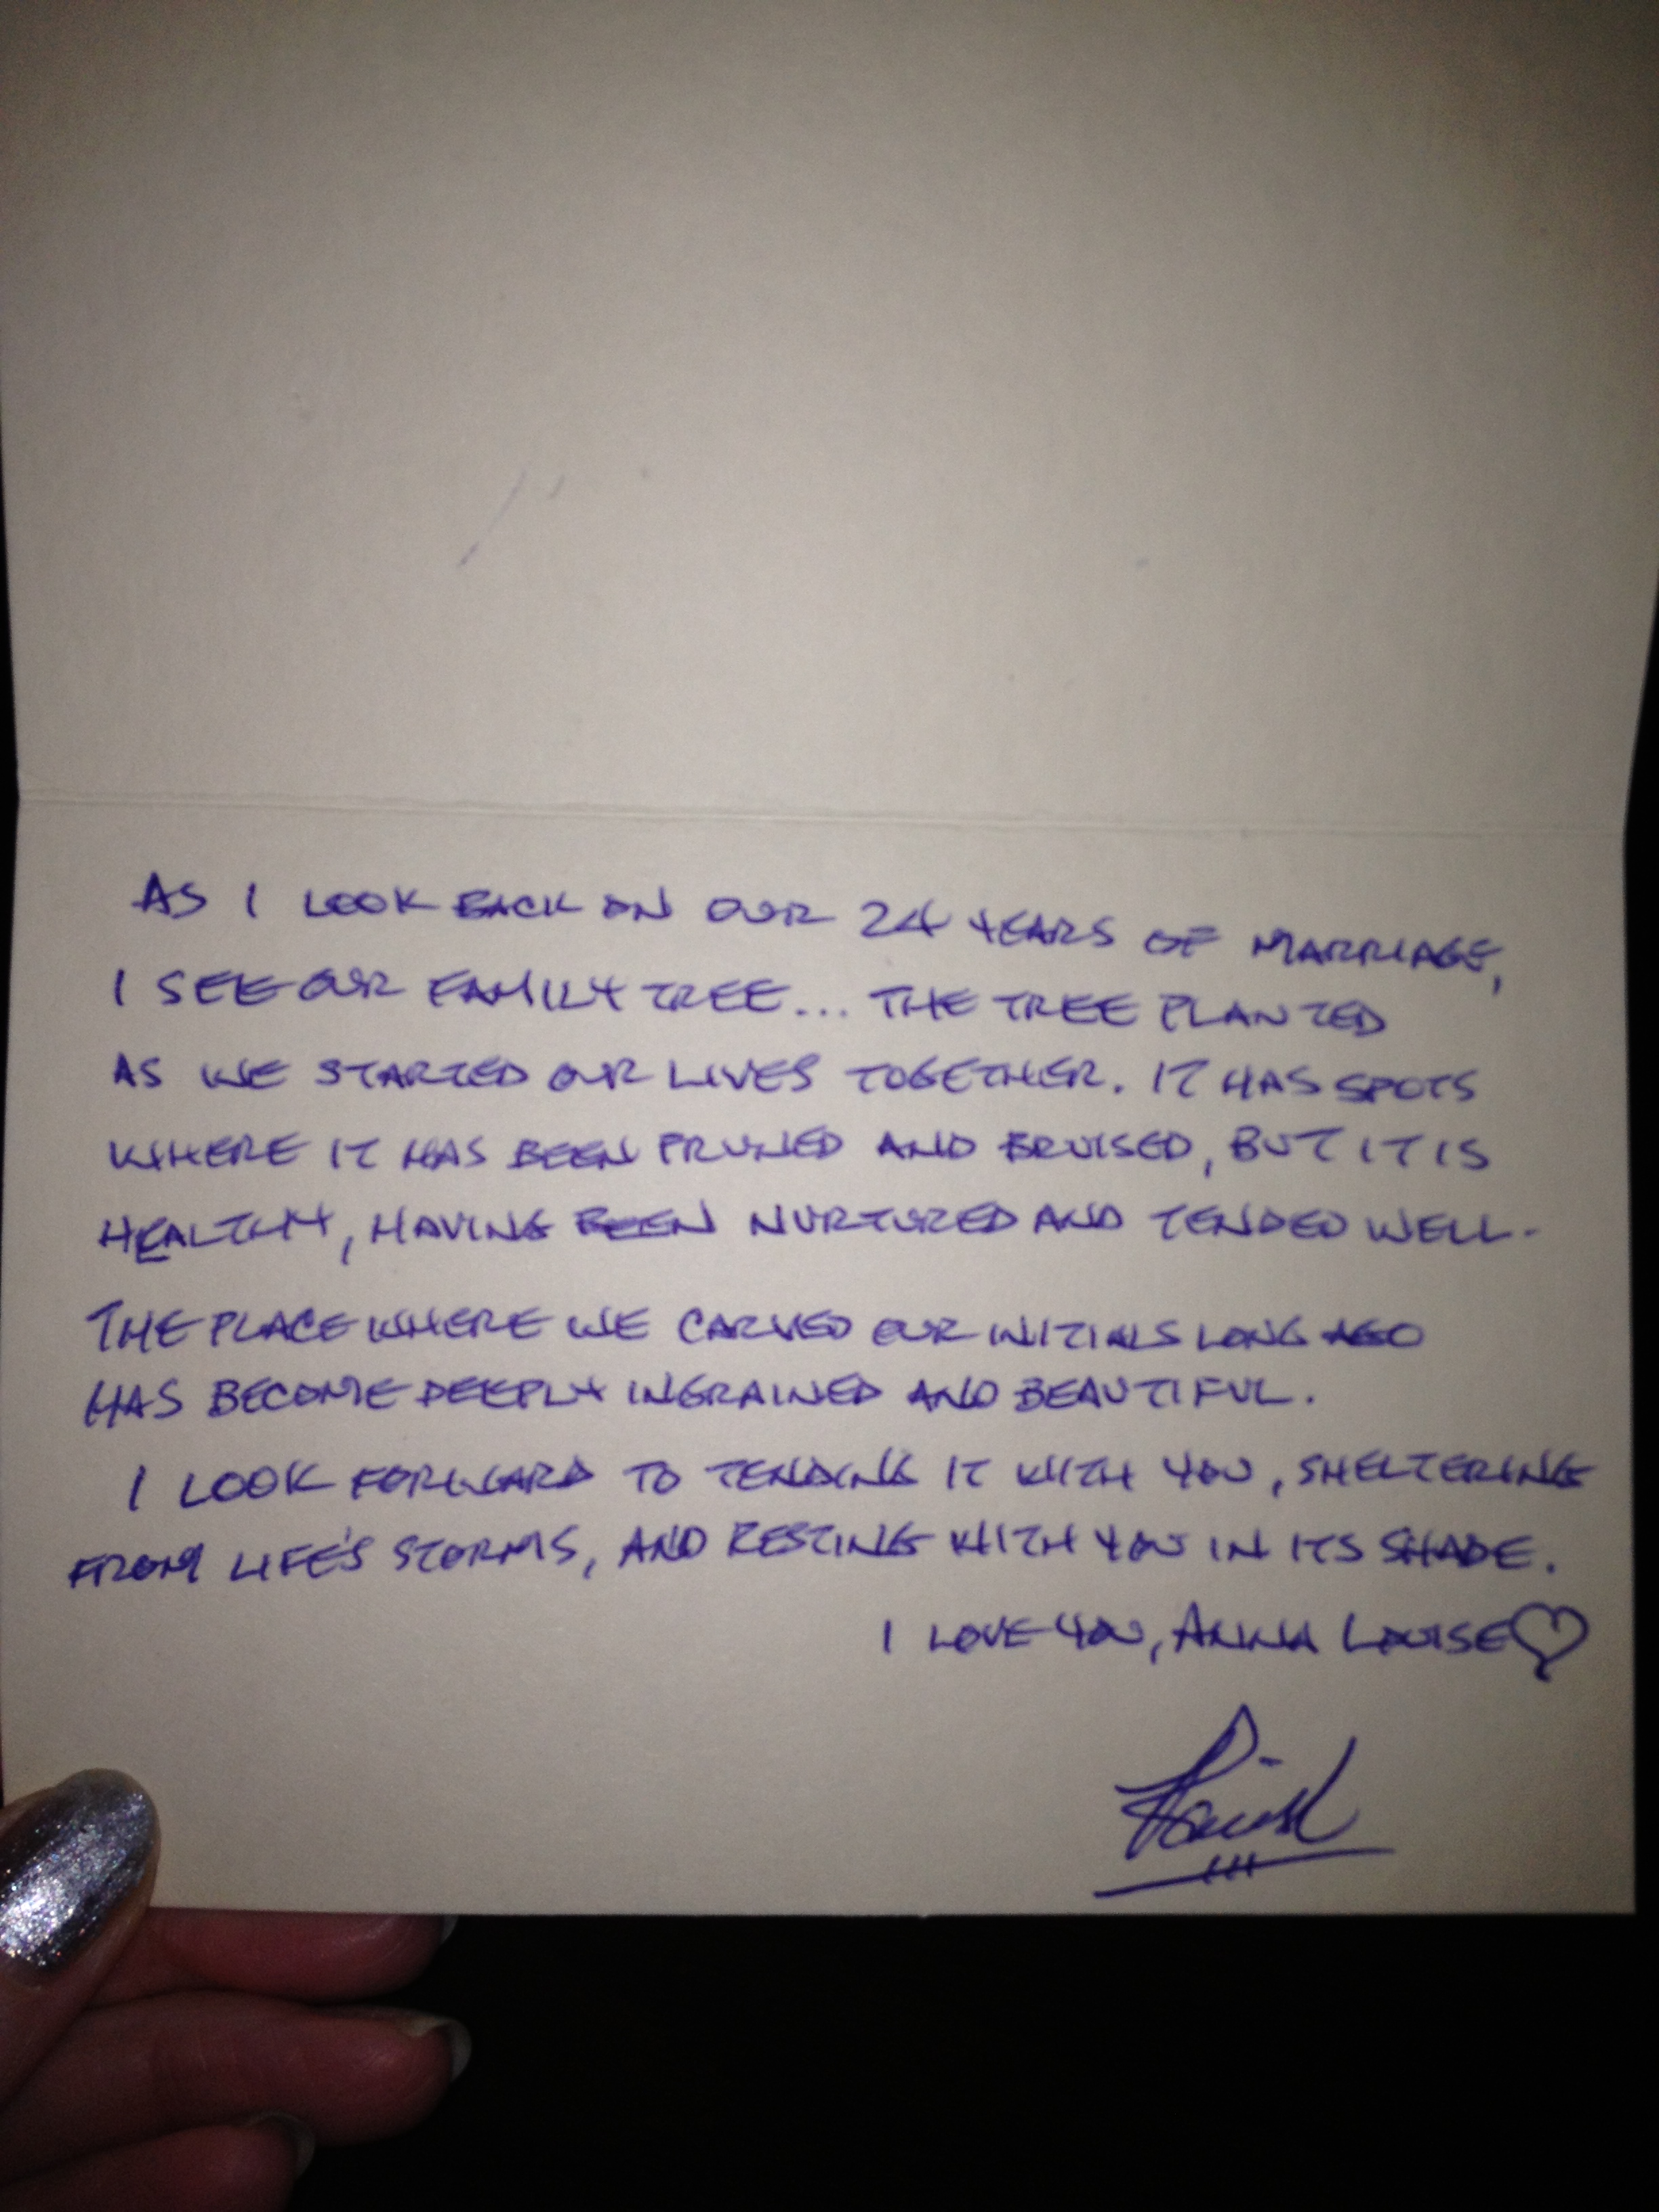 AS I LOOK BACK ON OUR 24 YEARS OF MARRIAGE,
I SEE OUR FAMILY TREE... THE TREE PLANTED
AS WE STARTED OUR LIVES TOGETHER. IT HAS SPOTS
WHERE IT HAS BEEN PRUNED AND BRUISED, BUT IT IS
HEALTHY, HAVING BEEN NURTURED AND TENDED WELL.
THE PLACE WHERE WE CARVED OUR INITIALS LONG AGO
HAS BECOME DEEPLY INGRAINED AND BEAUTIFUL.
I LOOK FORWARD TO TENDING IT WITH YOU, SHELTERING
FROM LIFE'S STORMS, AND RESTING WITH YOU IN ITS SHADE.
I LOVE YOU, ANNA LOUISE